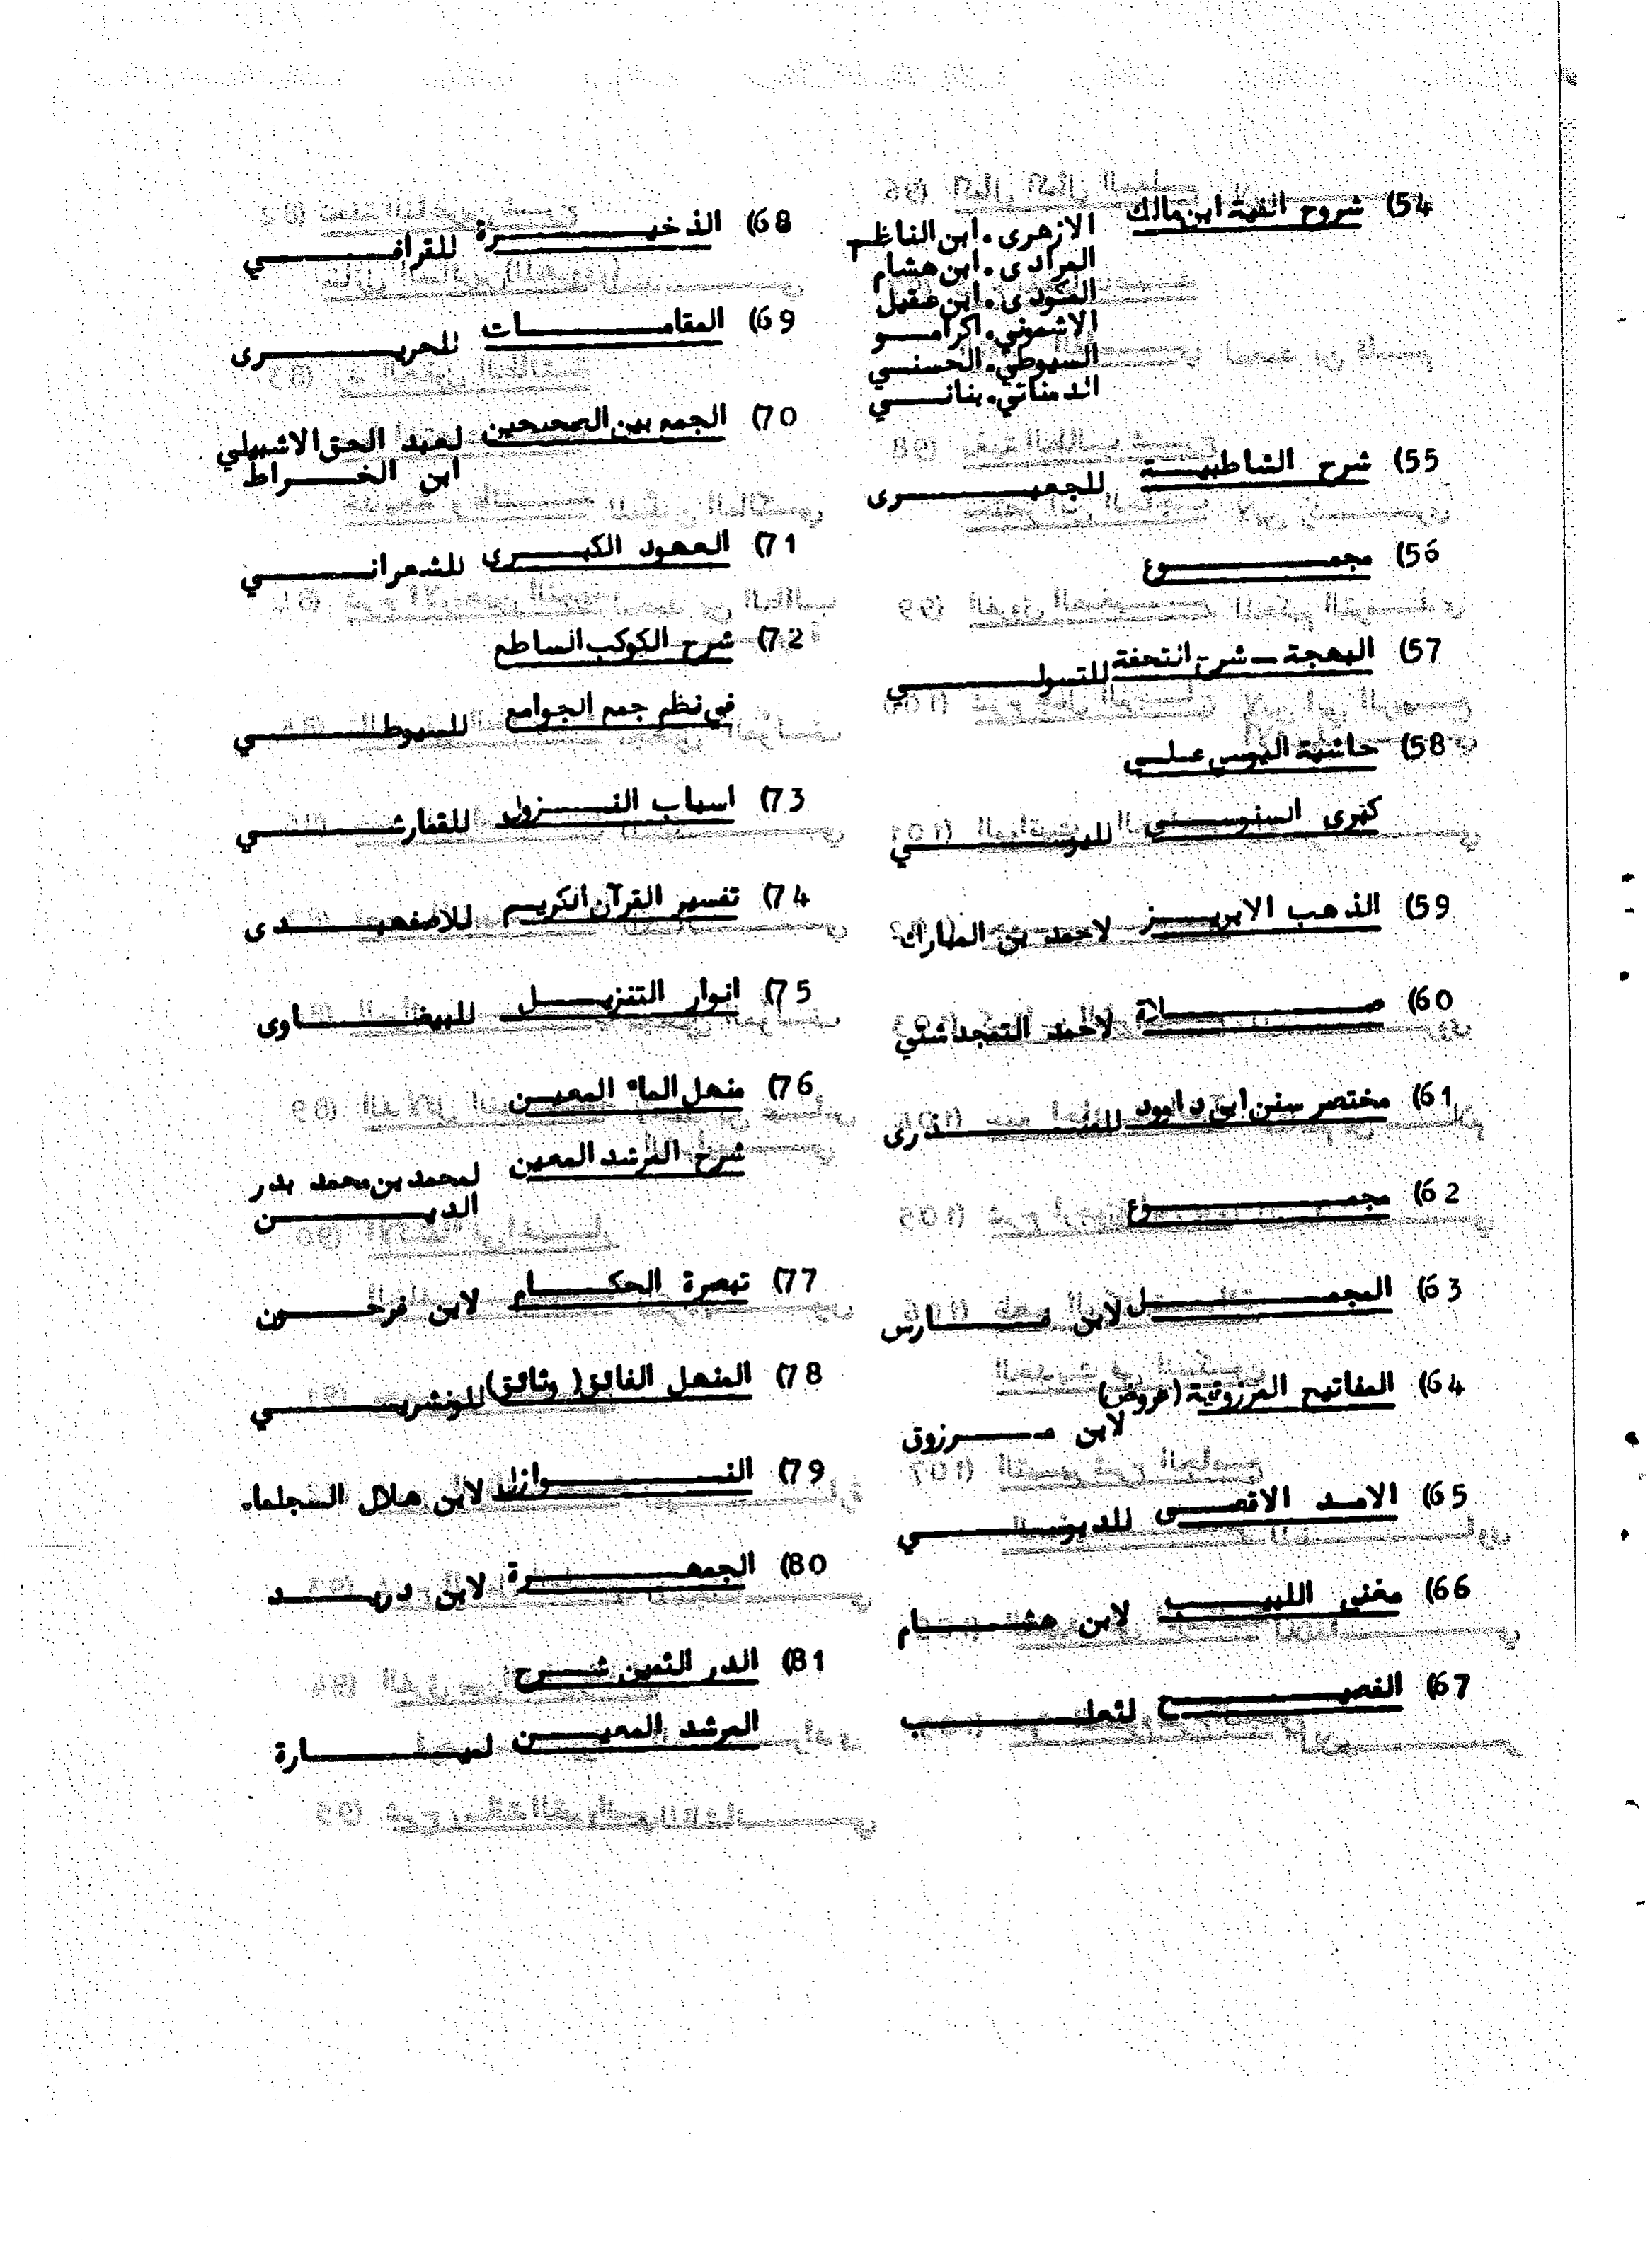 54) شروح الفية ابن مالك الازهرى . ابن الناظم
المرادى . ابن هشام
المكودى . ابن عقيل
الاشموني . اكرامو
السيوطي . الحسني
الدمناتي . بناني
55) شرح الشاطبية للجعبرى
56) مجموع
57) البهجة ــ شرح التحفة للتسولي
58) حاشية اليوسي علي
كبرى السنوسي لليوسي
59) الذهب الابريز لاحمد بن المبارك
60) صلاة لاحمد التمجدشتي
61) مختصر سنن ابي داوود للمنذرى
62) مجموع
63) المجمل لابن فارس
64) المفاتيح المرزوقية (عروض)
لابن مرزوق
65) الامد الاقصى للدبوسي
66) مغني اللبيب لابن هشام
67) الفصيح لثعلب
68) الذخيرة للقرافي
69) المقامات للحريرى
70) الجمع بين الصحيحين لعبد الحق الاشبيلي
ابن الخراط
71) العهود الكبرى للشعراني
72) شرح الكوكب الساطع
في نظم جمع الجوامع للسيوطي
73) اسباب النزول
74) تفسير القرآن الكريم للاصفهدى
75) انوار التنزيل للبيضاوى
76) منهل الماء المعين
شرح المرشد المعين لمحمد بن محمد بدر
الدين
77) تبصرة الحكام لابن فرحون
78) المنهل الفائق (وثائق) للونشريسي
79) النوازل لابن هلال السجلما.
80) الجمهرة لابن دريد
81) الدر الثمين شرح
المرشد المعين لميارة